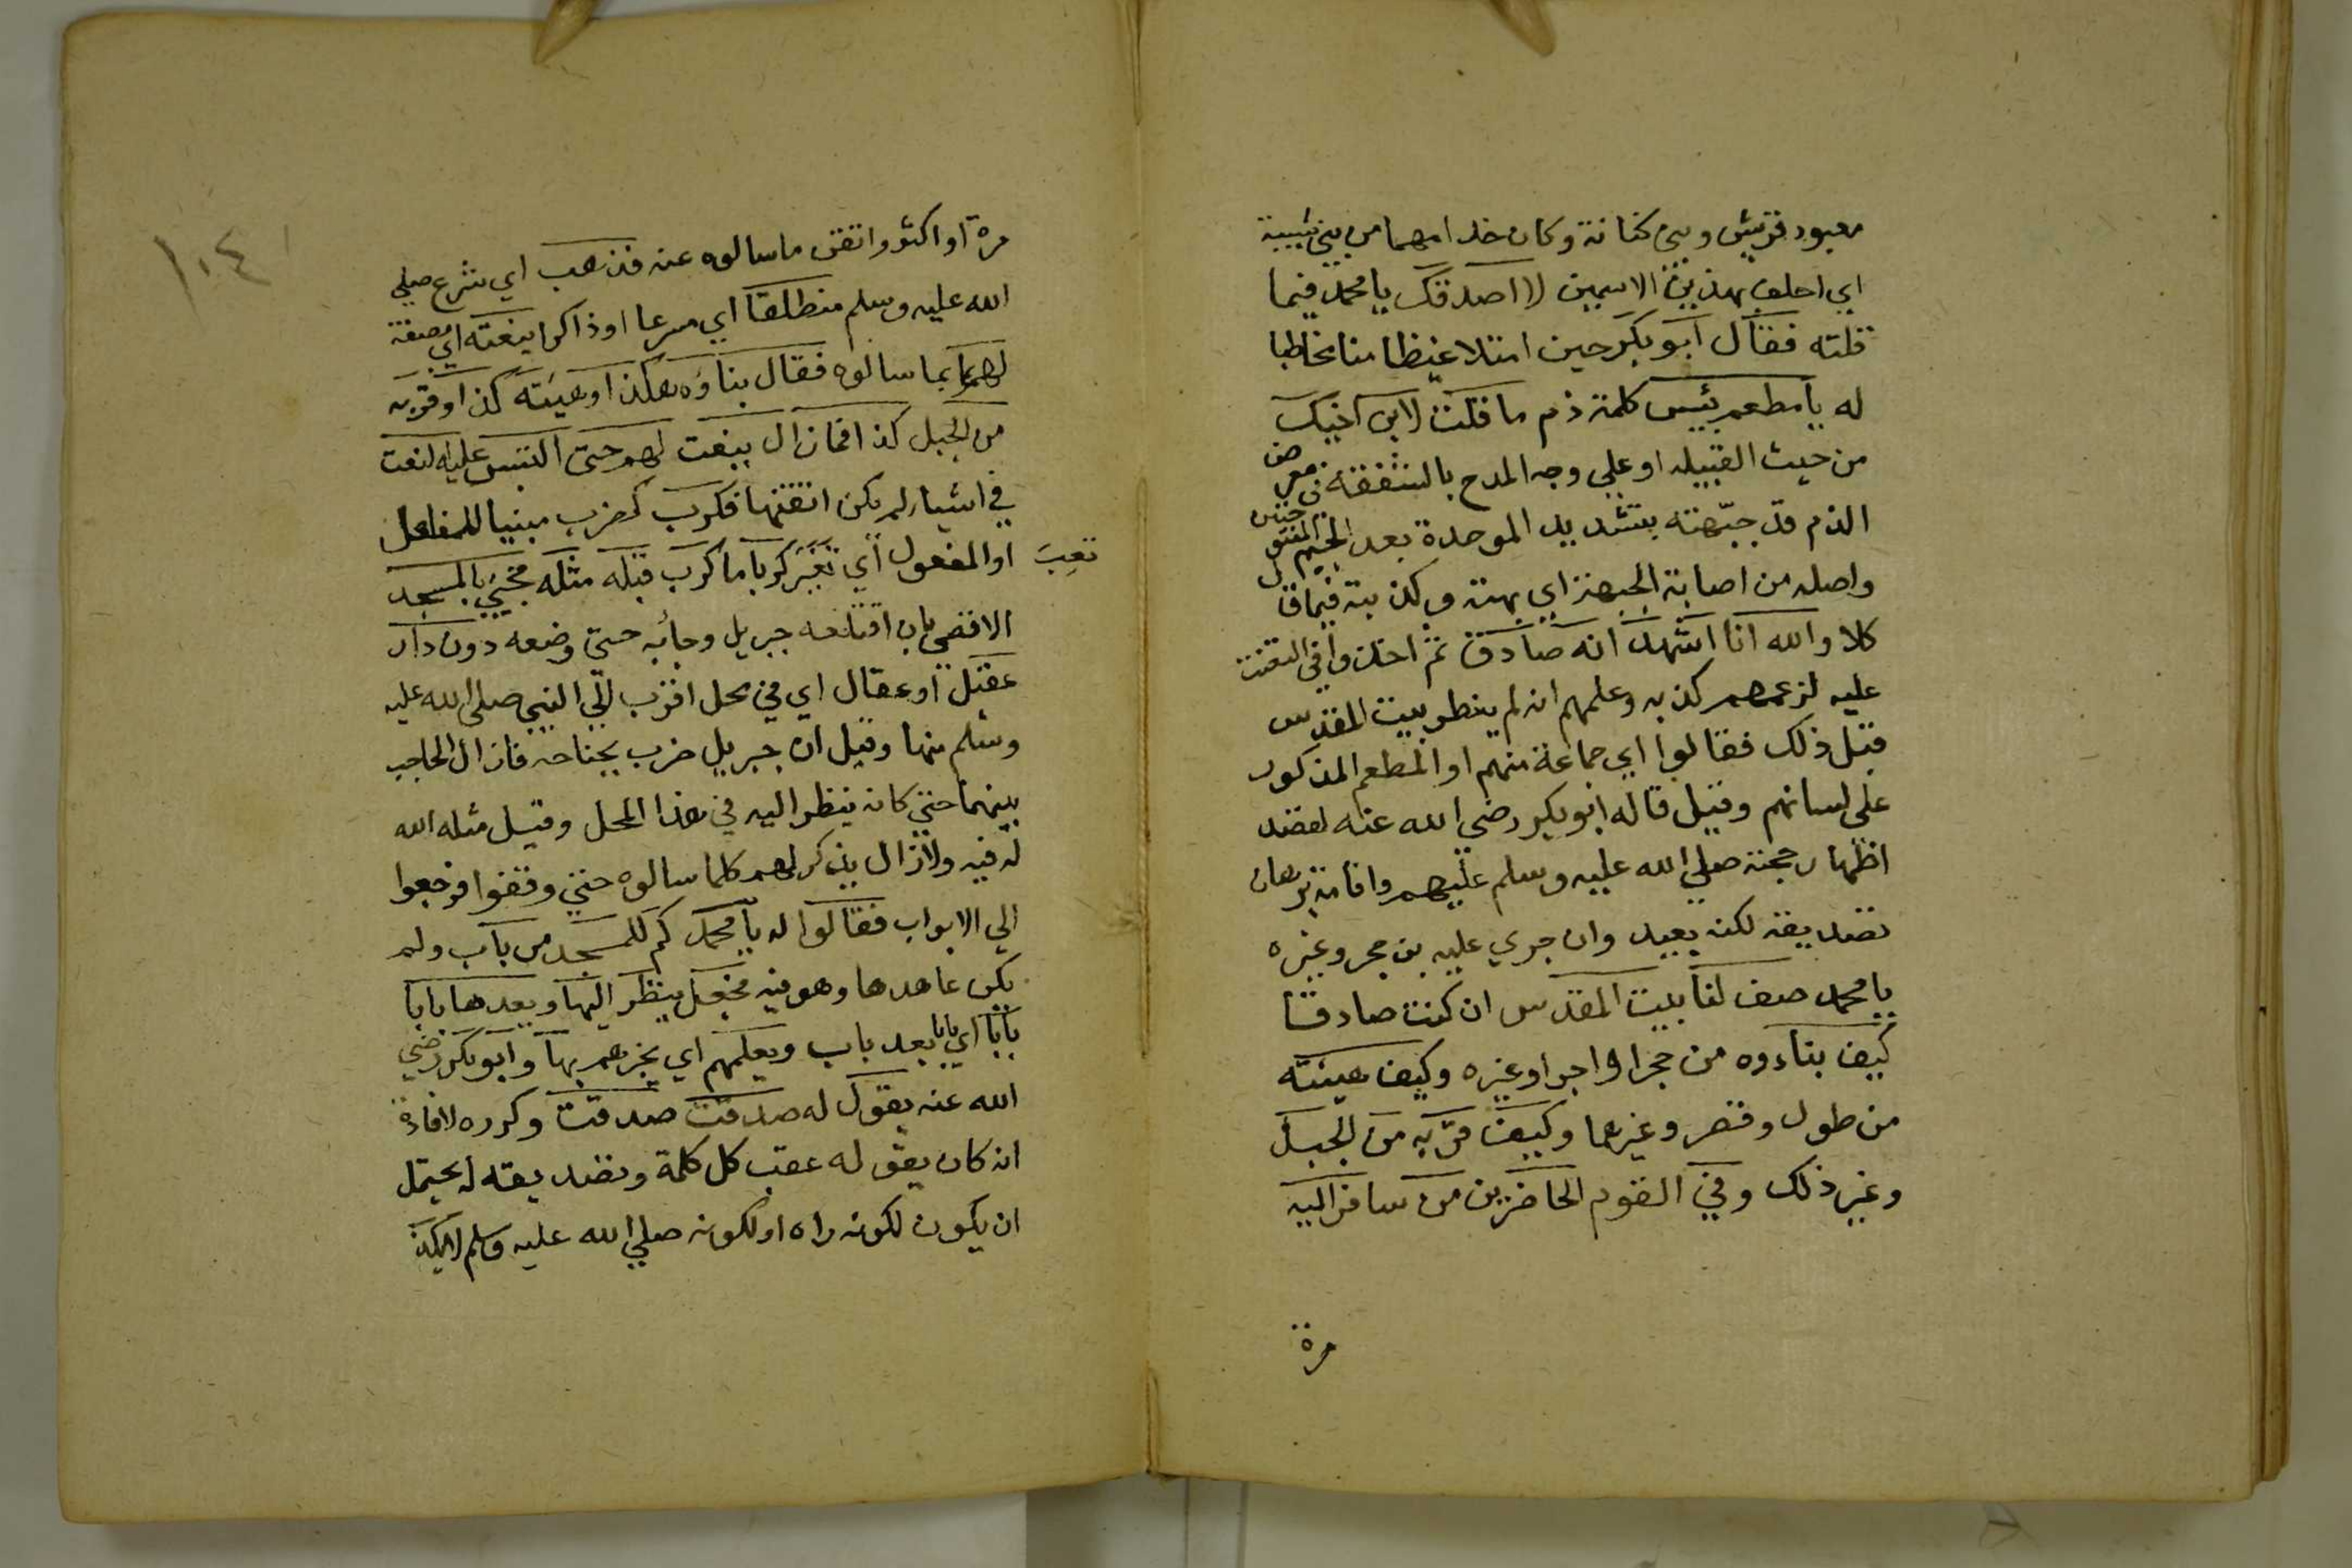 معبود قريش وبني كنانة وكان خدامهما من بني شيبة
اي احلف بهذين الاسمين لا اصدقك يا محمد فيما
قلته فقال ابو بكر حين امتلا غيظا منا مخاطبا
له يا مطعم بئيس كلمة ذم ما قلت لابن اخيك
من حيث القبيله او علي وجه المدح بالشفقة في معرض
الذم قد جبّهته بتشديد الموحدة بعد الجيم المفتوحتين
واصله من اصابة الجبهة اي بهته وكذبته فيما قال
كلا والله انا اشهد انه صادق ثم اخذوا في التعنت
عليه لزعمهم كذبه وعلمهم انه لم ينظر بيت المقدس
قبل ذلك فقالوا اي جماعة منهم او المطعم المذكور
على لسانهم وقيل قاله ابو بكر رضي الله عنه لقصد
اظهار حجته صلي الله عليه وسلم عليهم واقامة برهان
تصديقه لكنه بعيد وان جري عليه بن حجر وغيره
يا محمد صف لنا بيت المقدس ان كنت صادقا
كيف بناءوه من حجر او اجر او غيره وكيف هيئته
من طول وقصر وغيرهما وكيف قربه من الجبل
وغير ذلك وفي القوم الحاضرين من سافر اليه
مرة
١٠٤
مرة او اكثر واتقن ما سالوه عنه فذهب اي شرع صلي
الله عليه وسلم منطلقا اي مسرعا او ذاكرا ينعته اي يصفه
لهم بما سالوه فقال بناؤه هكذا وهيئته كذا وقربه
من الجبل كذا فما زال ينعت لهم حتي التبس عليه النعت
في اشياء لم يكن اتقنها فكرب كضرب مبنيا للفاعل
او المفعول اي تغير كربا ما كرب قبله مثله فجيئ بالمسجد
تعِبَ
الاقصي بان اقتلعه جبريل وجائه حتي وضعه دون دار
عقيل او عقال اي في محل اقرب الي النبي صلي الله عليه
وسلم منها وقيل ان جبريل ضرب بجناحه فازال الحاجب
بينهما حتي كان ينظر اليه في هذا المحل وقيل مثله الله
له فيه ولا زال يذكر لهم كلما سالوه حتي وقفوا فرجعوا
الي الابواب فقالوا له يا محمد كم للمسجد من باب ولم
يكن عاهدها وهو فيه فجعل ينظر اليها ويعدها بابا
بابا اي بابا بعد باب ويعلمهم اي يخبرهم بها وابو بكر رضي
الله عنه يقول له صدقت صدقت وكرره لافادة
انه كان يقوله عقب كل كلمة وتصديقه له يحتمل
ان يكون لكونه راه او لكونه صلي الله عليه وسلم